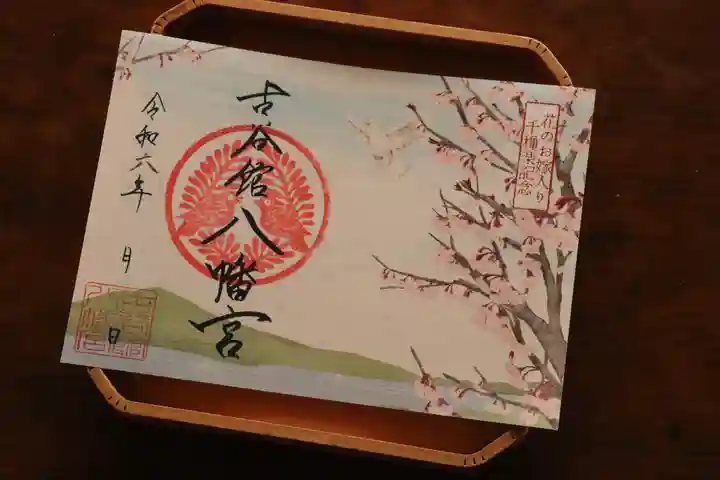 花のお嫁入り
千種県記念
古谷館八幡宮
令和六年 月 日